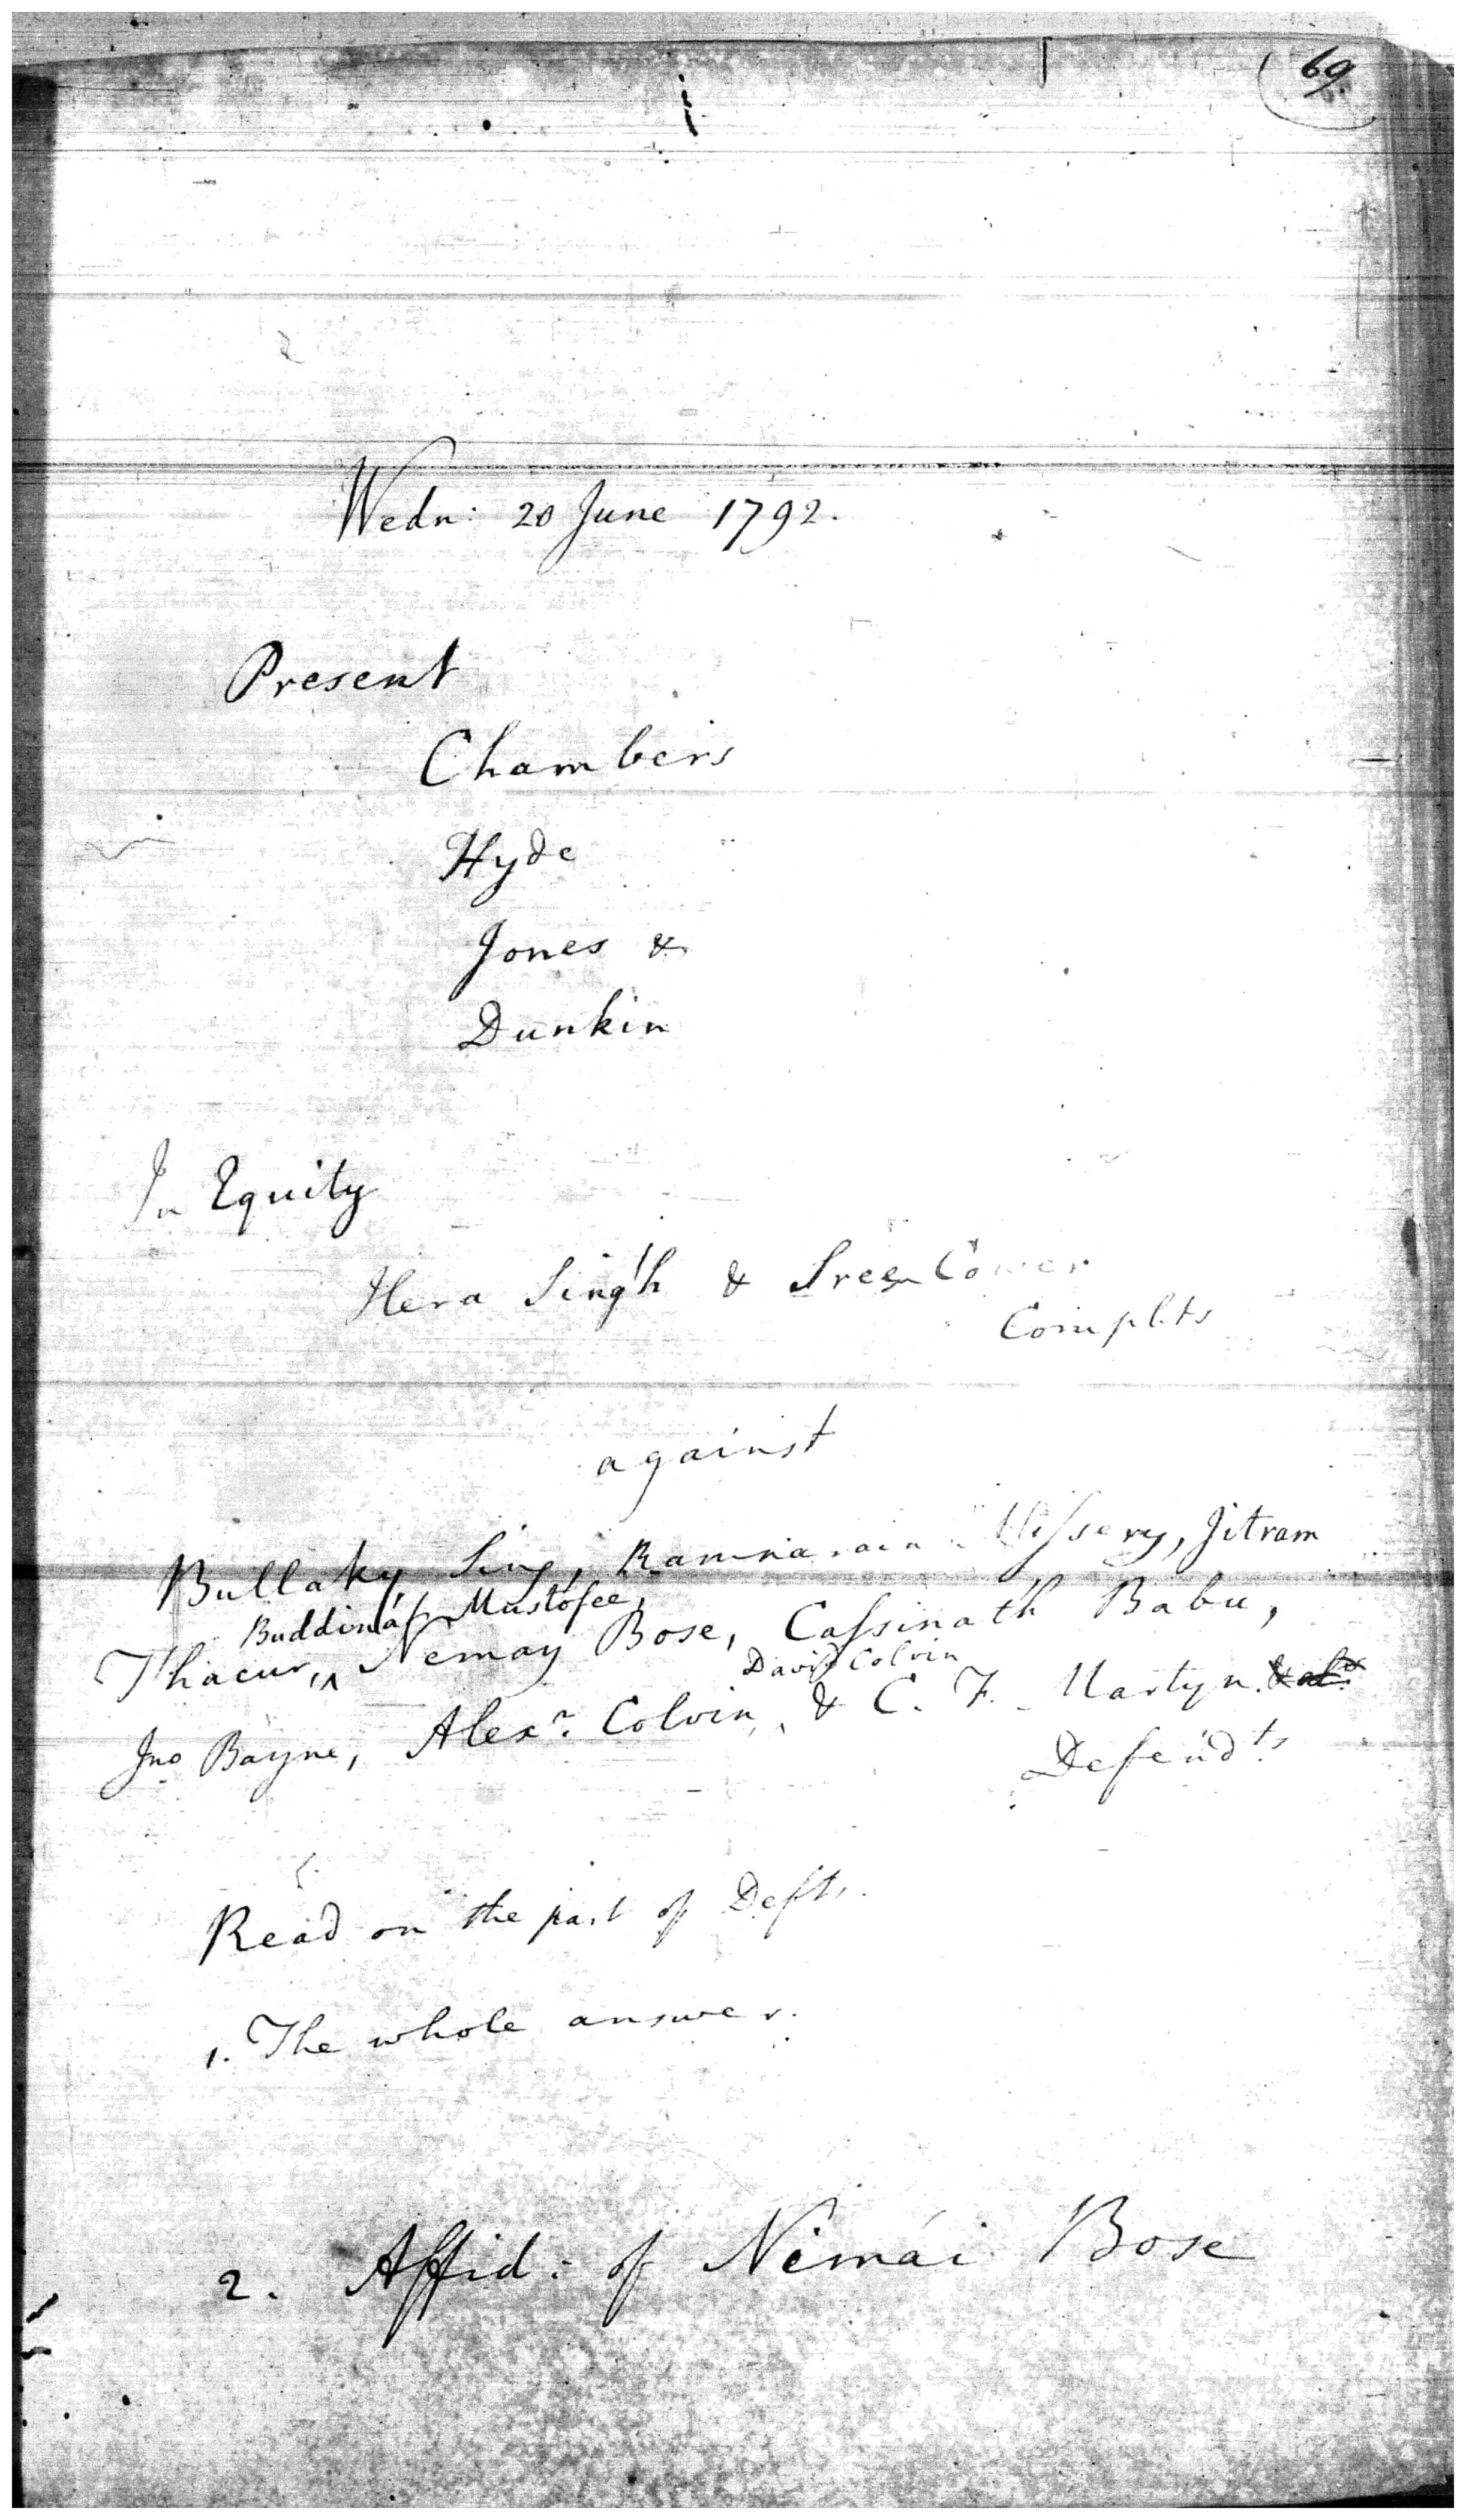 69.
Wedn: 20 June 1792.
Present
Chambers
Hyde
Jones &
Dunkin
In Equity
Hera Singh & Sree Cower
Complts
against
Bullaky Sing, Ramnarain Missery, Jitram
Buddinát Mustofee,
Thacur, ^ Nemay Bose, Cassinath Babu,
David Colvin
Jno Bayne, Alexr. Colvin, & C. F. Martyn
Defendts
Read on the part of Defts.
1. The whole answer.
2. Affid: of Nemái Bose